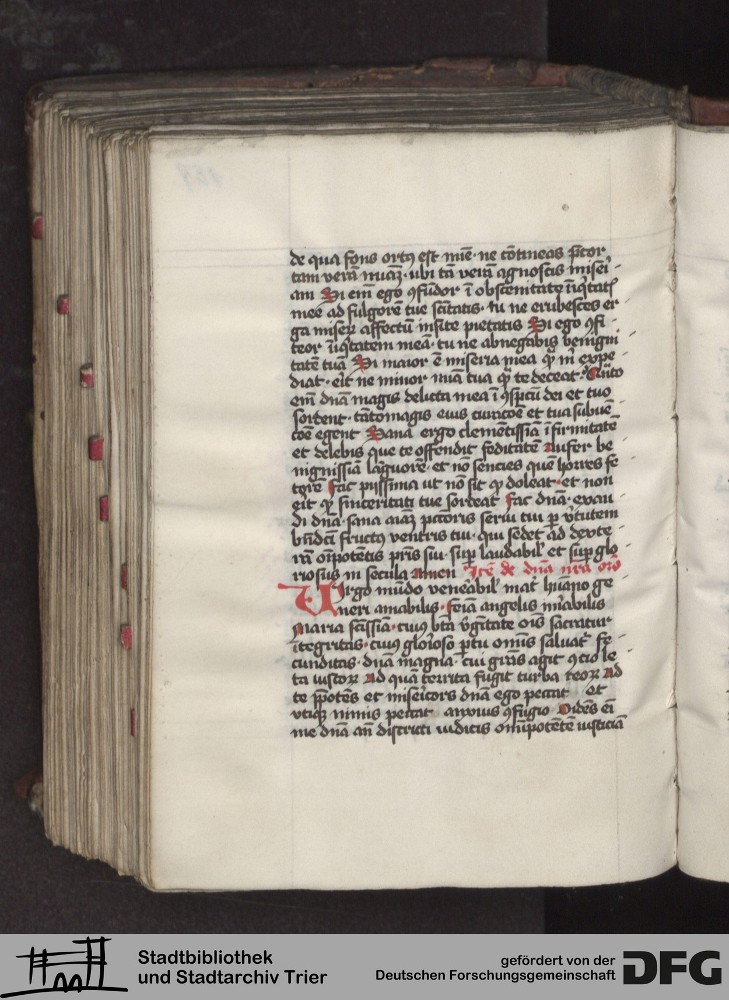 de qua fons ortꝯ est mīe · ne cōtineas p̄tor
tam verā mīaꝫ · ubi tā verā agnoscis miseri
am Si em̄ ego ꝯfūdor ī obscenitate īiq̄tatꝭ
mee ad fulgorē tue sc̄itatis · tu ne erubesces er
ga miseꝝ affectū insite pietatis Si ego ꝯfi
teor īiq̄tatem meā · tu ne abnegabis benigni
tatē tuā Si maior ē miseria mea qͣꝫ m̄ expe
diat · eit ne minor mīa tua qͣꝫ te deceat · Qūto
em̄ dn̄a magis delicta mea ī ꝯspc̄u dei et tuo
sordent · tātomagis eius curicōe et tua subuē
cōe egent Sana ergo clementissīa īfirmitatē
et delebis que te offendit feditatē Aufer be
nignissīa lāguorē · et nō sencies quē horres fe
torē Fac piissima ut nō sit qͦ doleat · et non
eit qͣꝫ sinceritati tue sordeat Fac dn̄a · exau
di dn̄a · sana aīaꝫ pctōris serui tui ꝑ v̄tutem
bn̄dc̄i fructꝯ ventris tui · qui sedet ad dexte
rā oīpotētis pr̄is sui · suꝑ laudabilꝭ et suꝑglo
riosus in secula Amen Itē de dn̄a nr̄a orō
Virgo mūdo veneᷓabilꝭ mat᷑ hūano ge
neri amabilis · feīa angelis mᷓabilis
Maria sc̄issīa · cuiꝯ btā v̄gītate oīs sacratur
ītegritas · cuiꝯ glorioso ꝑtu omīs saluat᷑ fe
cunditas · dn̄a magna · cui grās agit ꝯcio le
ta iustoꝝ Ad quā territa fugit turba reoꝝ Ad
te p̄potēs et miseʳcors dn̄a ego peccat᷑ et
vtiqꝫ nimis peccat᷑ anxius ꝯfugio Videns ei
me dn̄a an̄ districti iudicis om̄ipotētē iusticiā
Stadtbibliothek
und Stadtarchiv Trier
gefördert von der
Deutschen Forschungsgemeinschaft
DFG